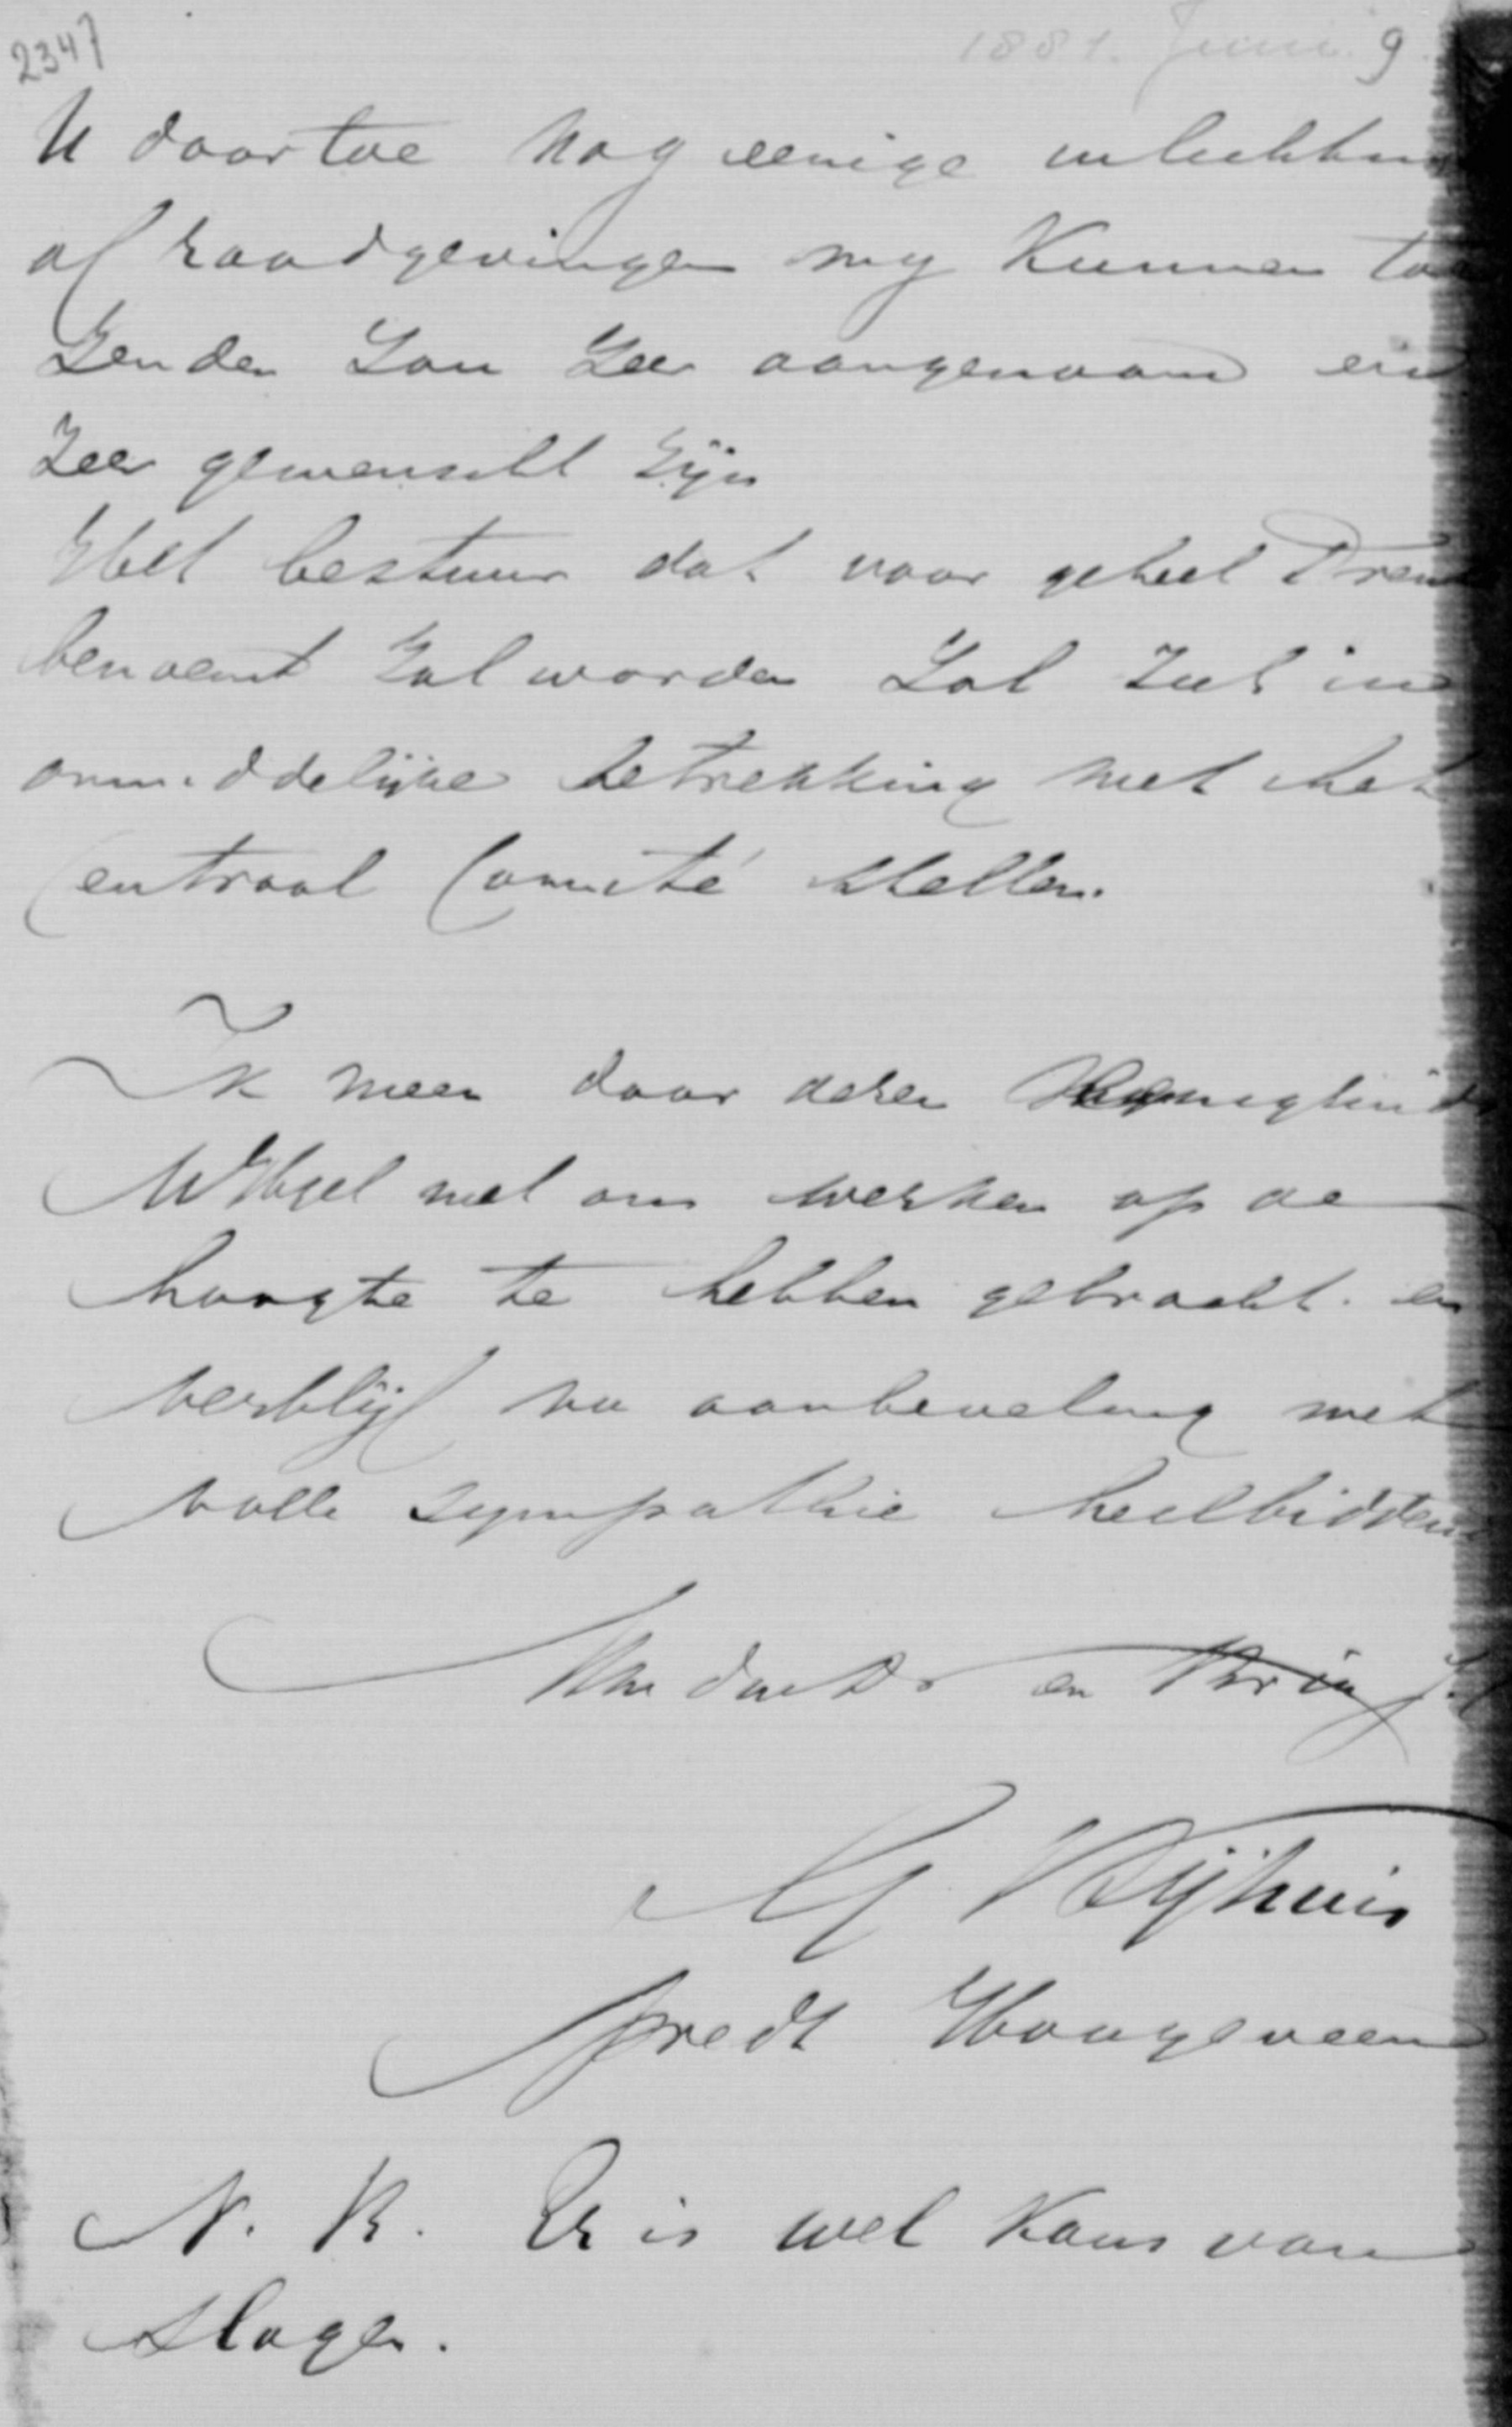 2347 1881. Juni 9
U daartoe nog eenige
of raadgevingen my kunnen
Zenden Zou Zeer aangenaam en
Zeer gewenscht Zijn
Het bestuur dat voor geheel
benoemt Zal worden Zal Zich in
onmiddelijke betrekking met het
Centraal Comité stellen.
Ik meen door dezen
WHgel met ons werken op de
hoogte te hebben gebracht. en
verblijf na aanbeveling met
volle sympathie heilbiddend
Uw dw Dr en
Nijhuis
predt Hoogeveen
N. B. Er is wel kans van
slagen.